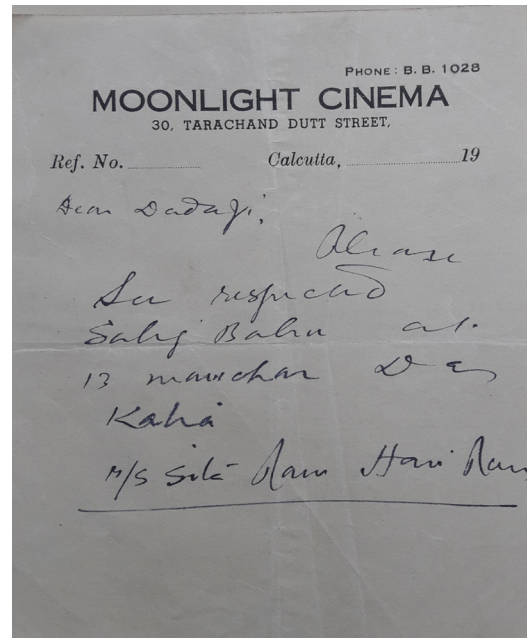 PHONE : B. B. 1028
MOONLIGHT CINEMA
30, TARACHAND DUTT STREET,
Ref. No.
Calcutta, 19
Dear Dadaji,
Please
See respected
Babu at
13
M/S Sita Ram Hari Ram